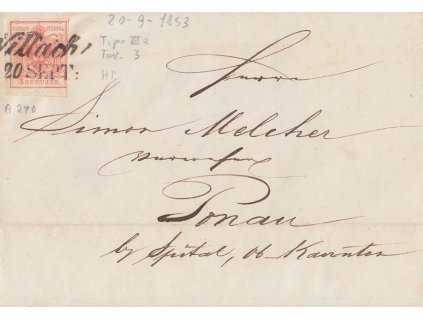 20-9-1853
Villach,
20 SEPT:
Tipo III a
Tav. 3
HP
3 KREUZER
A 270
Herrn
Simon Melcher
Ponau
by Spittal, Ob Kärnten